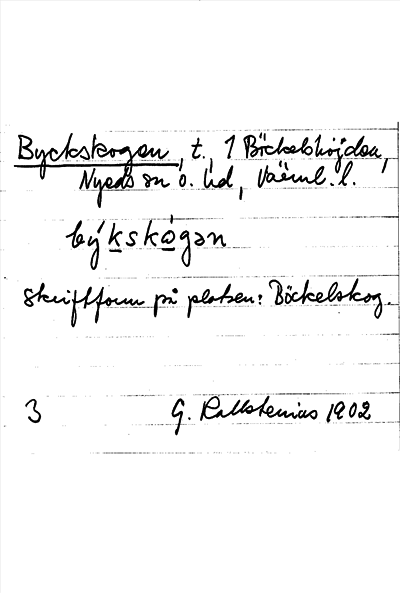 Byckskogen, t., 1 Böckelshöjden,
Nyeds sn o. hd, Värml. l.
býkskó̀gən
Skriftform på platsen: Böckelskog.
3 G. Kallstenius 1902